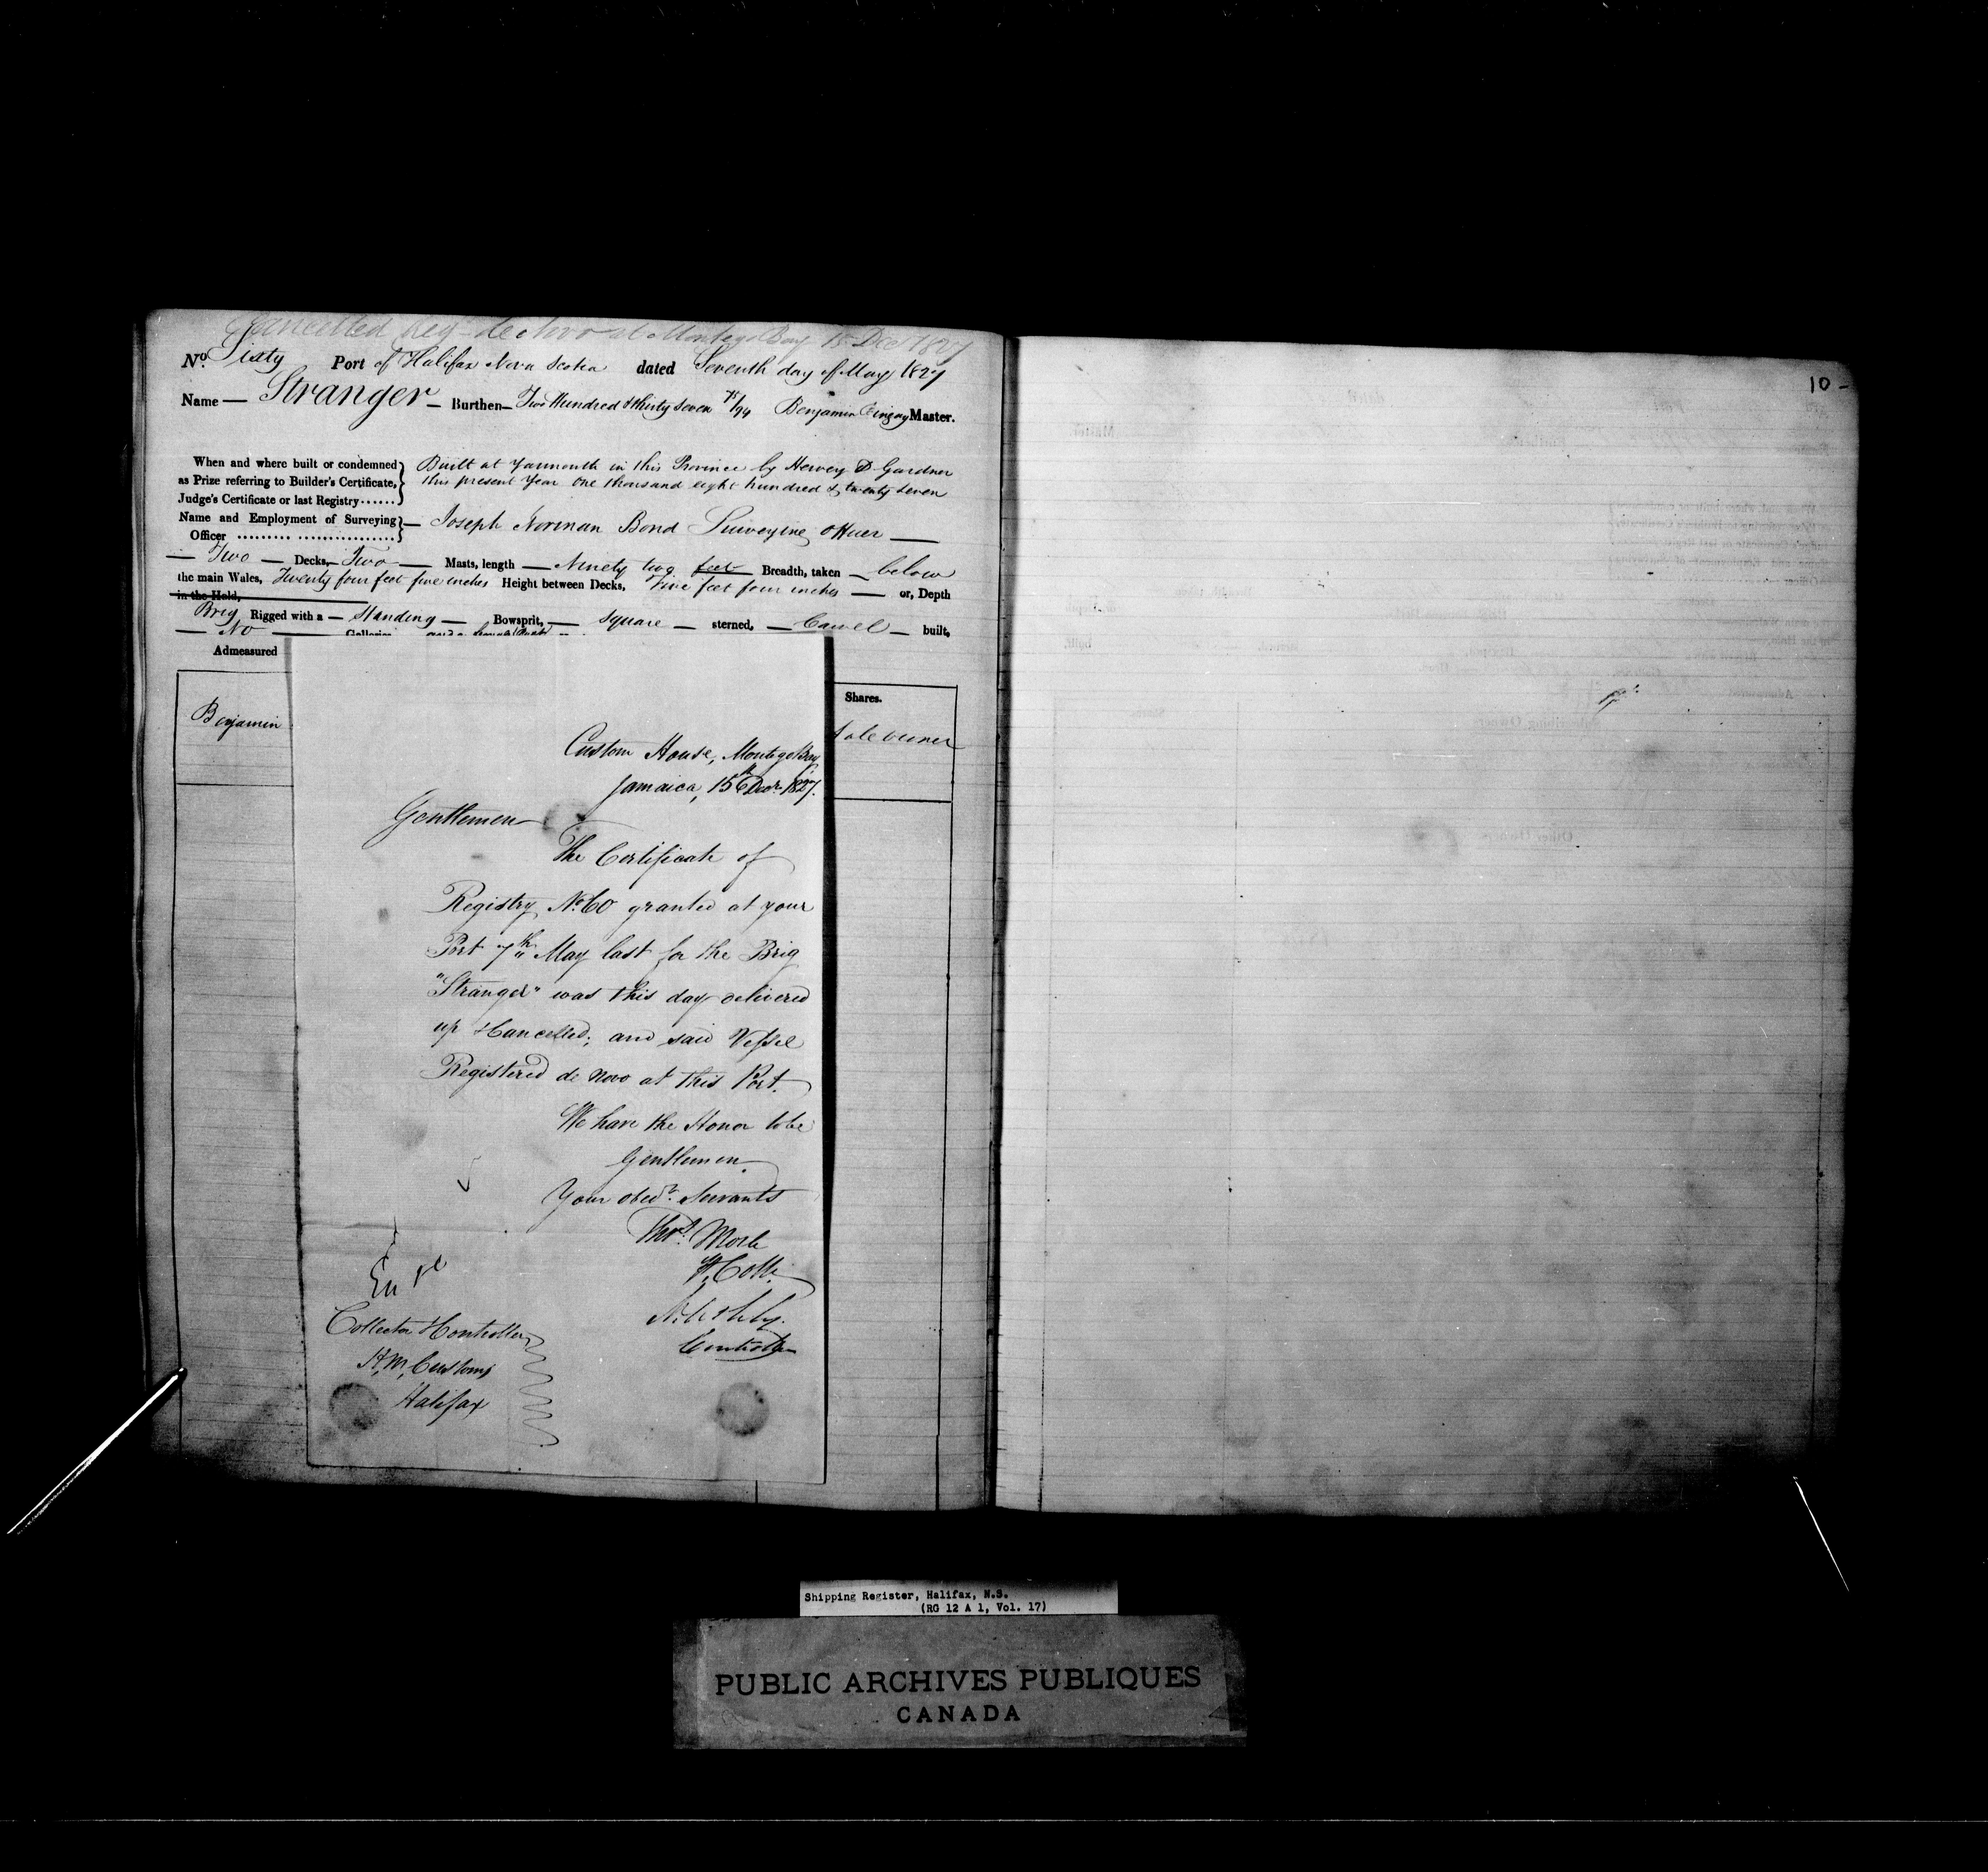 Cancelled Reg. de Novo at Montego Bay 15 Dec 1827
No. Sixty Port of Halifax Nova Scotia dated Seventh day of May 1827
Name — Stranger — Burthen — Two Hundred & thirty seven 75/94 Benjamin Master.
When and where built or condemned as Prize referring to Builder's Certificate, Judge's Certificate or last Registry......
Built at Yarmouth in this Province by Hervey D Gardner
this present Year one thousand eight hundred & twenty seven
Name and Employment of Surveying Officer ......... .................
— Joseph Norman Bond Surveying officer —
— Two — Decks, — Two — Masts, length — Ninety two feet Breadth, taken — below
the main Wales, Twenty four feet five inches Height between Decks, Five feet four inches — or, Depth
in the Hold,
Brig Rigged with a — Standing — Bowsprit, — Square — sterned, — Carvel — built,
— No — Galleries
Admeasured
Shares.
Benjamin
Sole owner
Custom House, Montego Bay
Jamaica, 15th Decr. 1827.
Gentlemen
The Certificate of
Registry No. 60 granted at your
Port 7th May last for the Brig
"Stranger" was this day delivered
up & Cancelled; and said Vessel
Registered de Novo at this Port.
We have the Honor to be
Gentlemen
Your obedt. Servants
Thos.
Collr.
Controller
Collector & Controller
H. M. Customs
Halifax
10 -
Shipping Register, Halifax, N.S.
(RG 12 A 1, Vol. 17)
PUBLIC ARCHIVES PUBLIQUES
CANADA